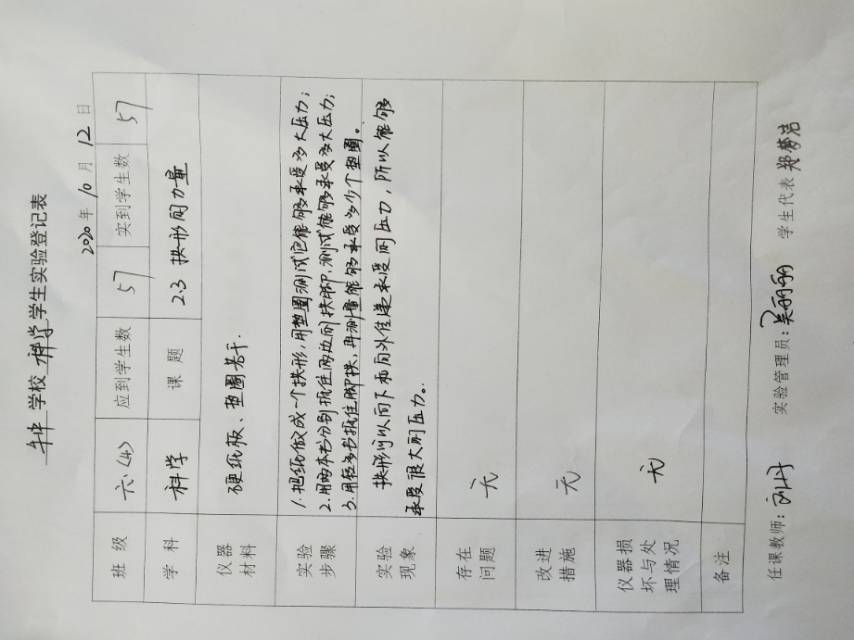 学校 科学 学生实验登记表
2020年 10月 12日
班级 六.(4) 应到学生数 57 实到学生数 57
学科 科学 课题 2.3 拱形的力量
仪器材料 硬纸板、垫圈若干.
实验步骤 1.把纸做成一个拱形,用垫圈测试它能够承受多大压力;
2.用两本书分别抵住两边的拱脚,测试能够承受多大压力;
3.用较多书抵住脚拱,再测量能够承受多少个垫圈。
实验现象 拱形可以向下和向外传递承受的压力,所以能够
承受很大的压力。
存在问题 无
改进措施 无
仪器损坏与处理情况 无
备注
任课教师:刘丹 实验管理员:吴丽丽 学生代表 郑梦洁